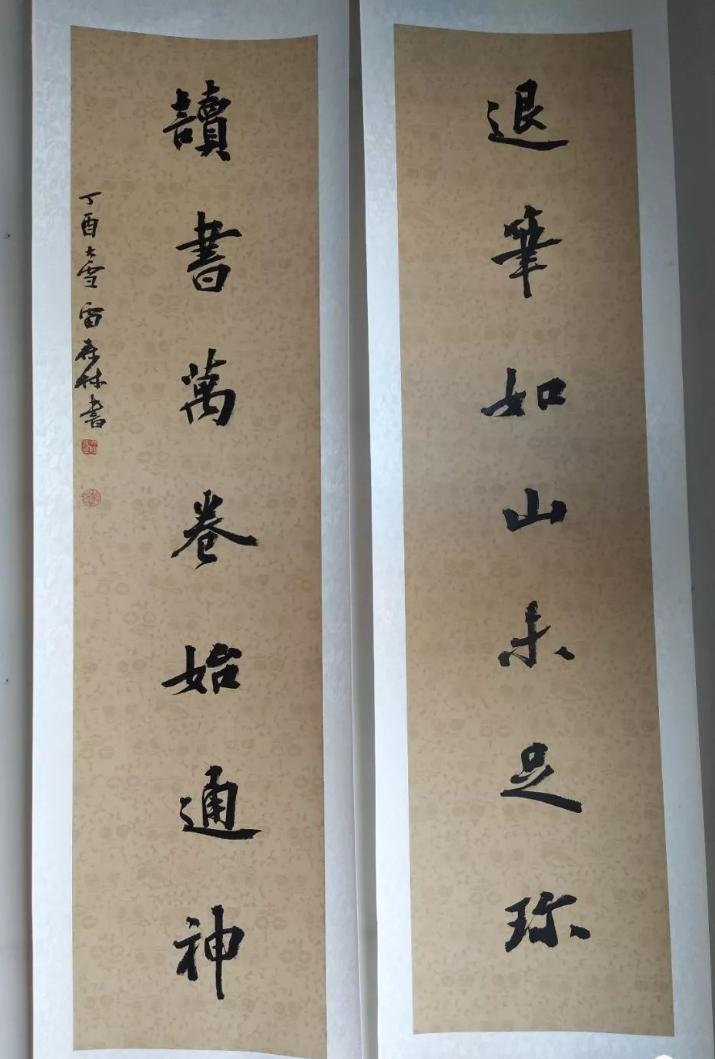 退筆如山未足珎
讀書萬卷始通神
丁酉大雪雷森林書